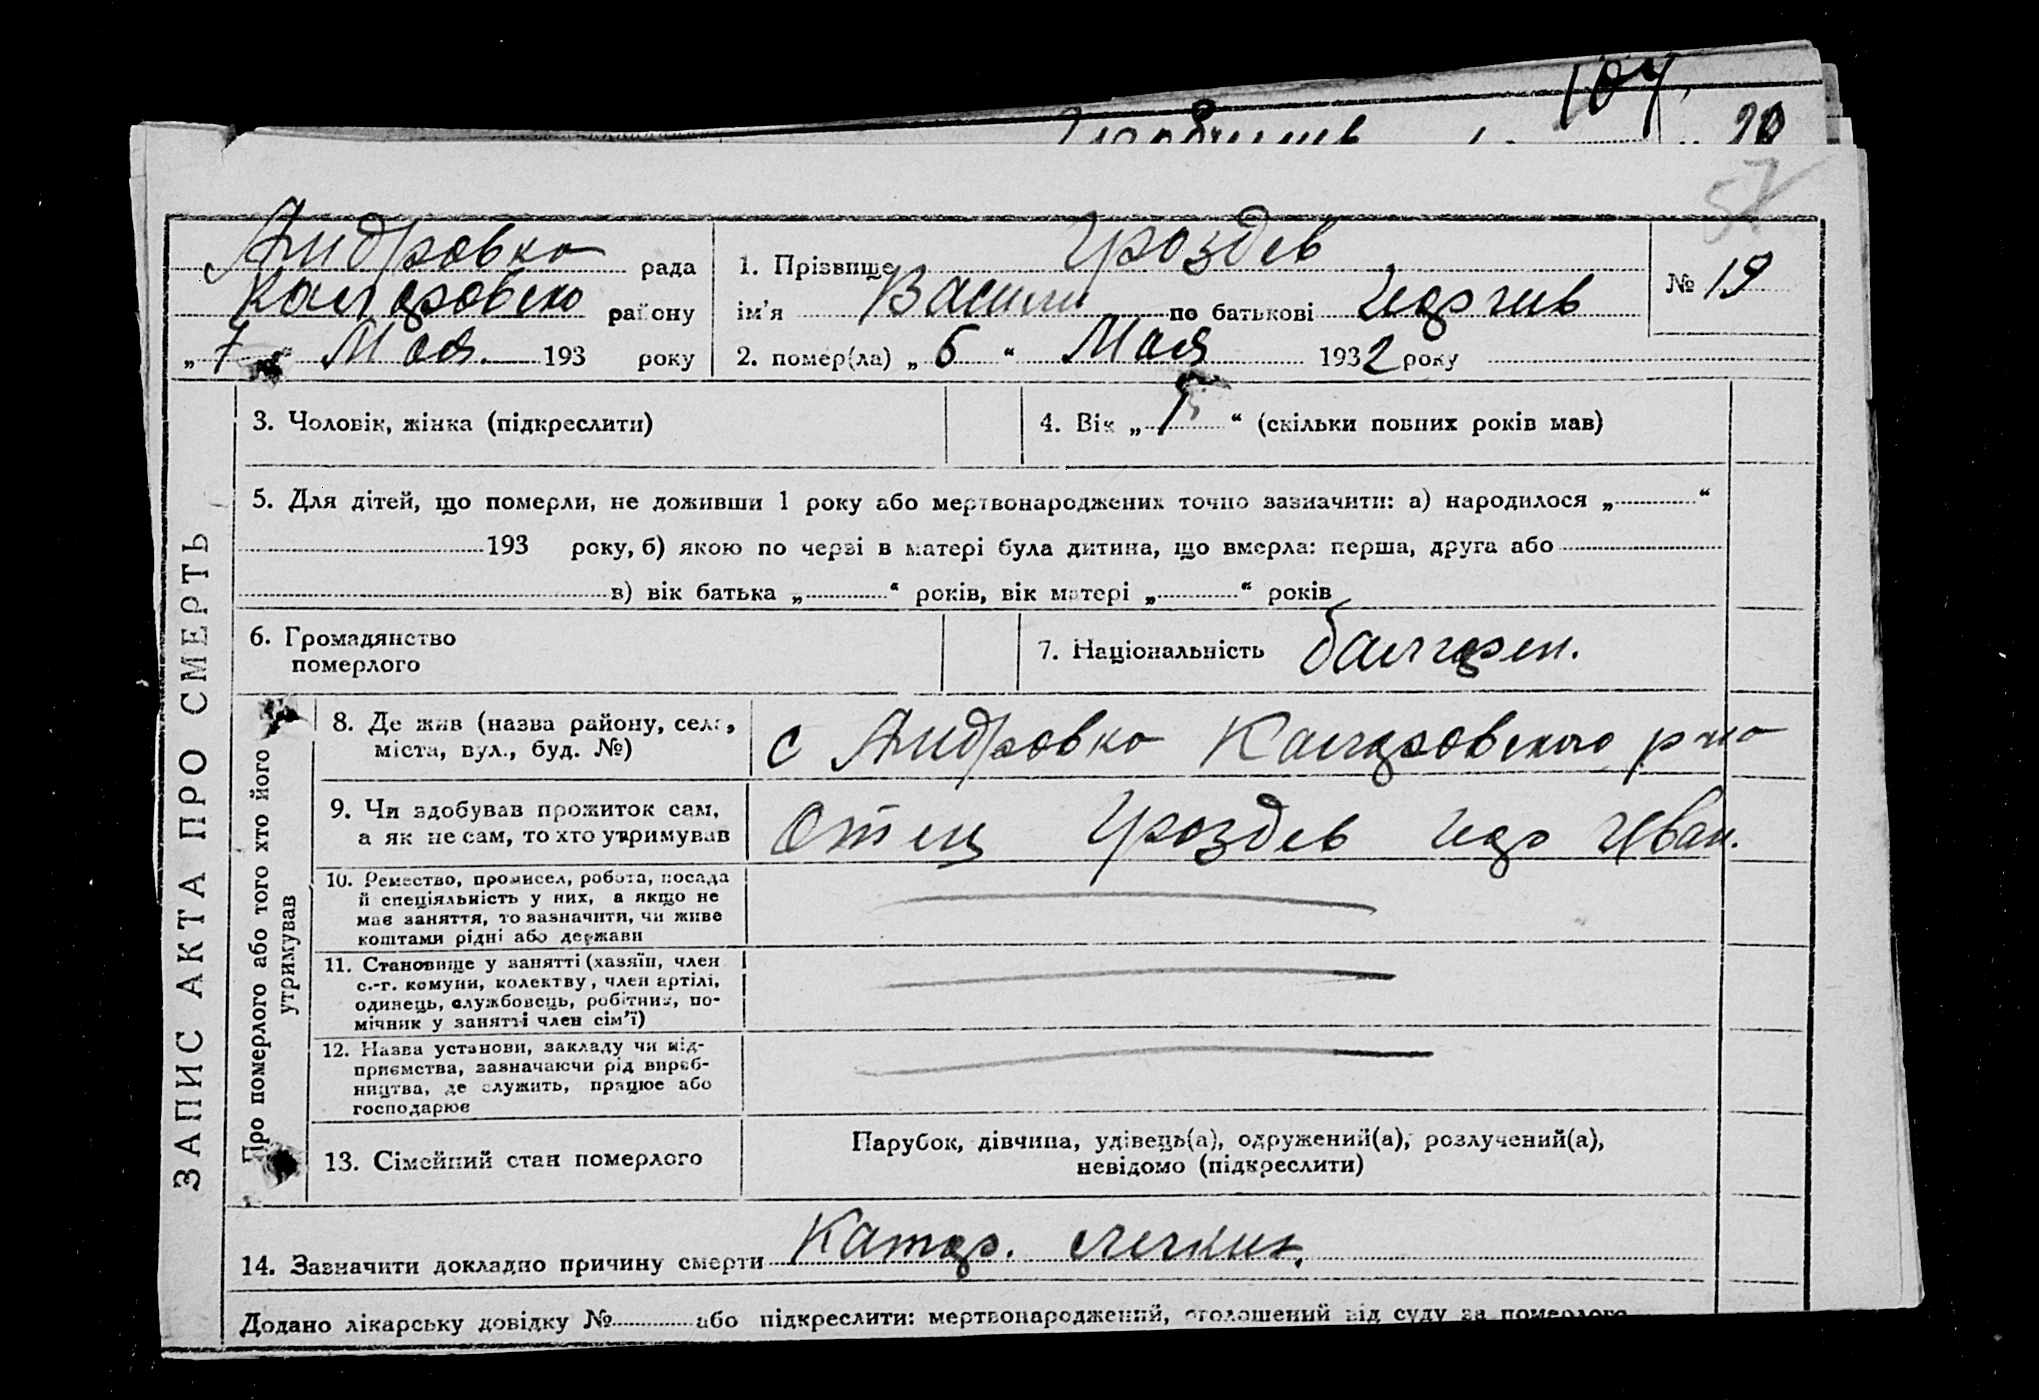 104
20
57
с Андровка рада
Коларовско району
„ 7 “ Мая 193 року
1. Прізвище Гроздев
ім'я Васили по батькові Игоргиев
№ 19
2. помер(ла) „ 6 “ Мая 1932 року
3. Чоловік, жінка (підкреслити)
4. Вік „ “ (скільки повних років мав)
5. Для дітей, що померли, не доживши 1 року або мертвонароджених точно зазначити: а) народилося „ “
193 року, б) якою по черзі в матері була дитина, що вмерла: перша, друга або
в) вік батька „ “ років, вік матері „ “ років
6. Громадянство
померлого
7. Національність болгарин.
ЗАПИС АКТА ПРО СМЕРТЬ
Про померлого або того хто його
утримував
8. Де жив (назва району, села,
міста, вул., буд. №)
с Андровка Коларовского р на
9. Чи здобував прожиток сам,
а як не сам, то хто утримував
Отец Гроздев Иван.
10. Ремество, промисел, робота, посада
й спеціяльність у них, а якщо не
має заняття, то зазначити, чи живе
коштами рідні або держави
11. Становище у занятті (хазяїн, член
с.-г. комуни, колектву, член артілі,
одинець, службовець, робітник, по-
мічник у занятті член сім'ї)
12. Назва установи, закладу чи під-
приємства, зазначаючи рід вироб-
ництва, де служить, працює або
господарює
13. Сімейний стан померлого
Парубок, дівчина, удівець(а), одружений(а), розлучений(а),
невідомо (підкреслити)
14. Зазначити докладно причину смерти Катар. легких.
Додано лікарську довідку № або підкреслити: мертвонароджений, оголошений від суду за померлого